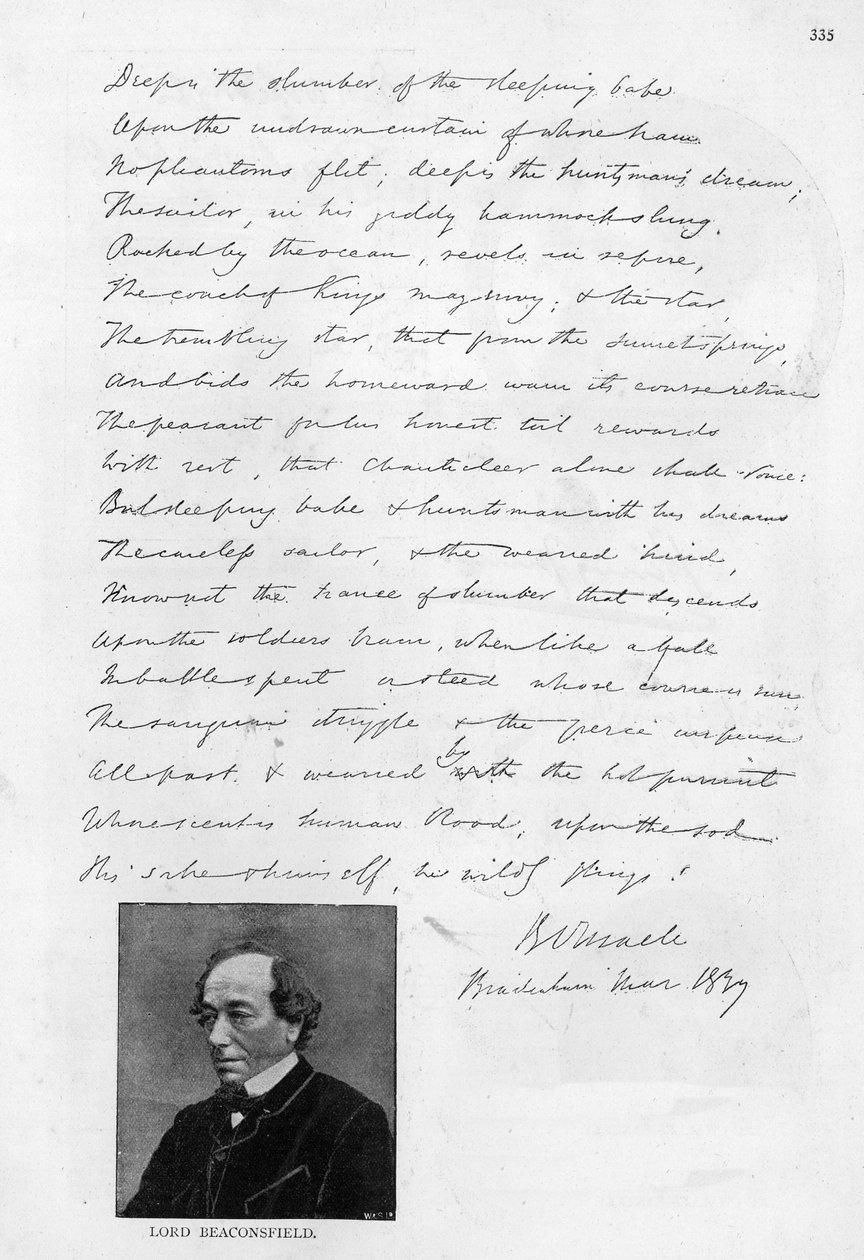 335
Deep is the slumber of the sleeping babe
Upon the undrawn curtain of whose
No phantoms flit; deep is the huntsman's dream;
The sailor, in his giddy hammock slung,
Rocked by the ocean, revels in repose,
The couch of Kings may envy; & the star,
The trembling star, that from the sunset springs,
And bids the homeward wain its course retrace
The peasant for his honest toil rewards
With rest, that Chanticleer alone shall
But sleeping babe & huntsman with his dreams
The careless sailor, & the wearied hind,
Know not the trance of slumber that descends
Upon the soldiers brain, when like a ball
In battle spent or steed whose course is run,
The sanguine struggle & the fierce suspense
All past, & wearied by with the hot pursuit
Whose scent is human blood; upon the sod
His sabre & himself, he wildly flings!
B Disraeli
Bradenham Mar 1839
W & S Ld
LORD BEACONSFIELD.